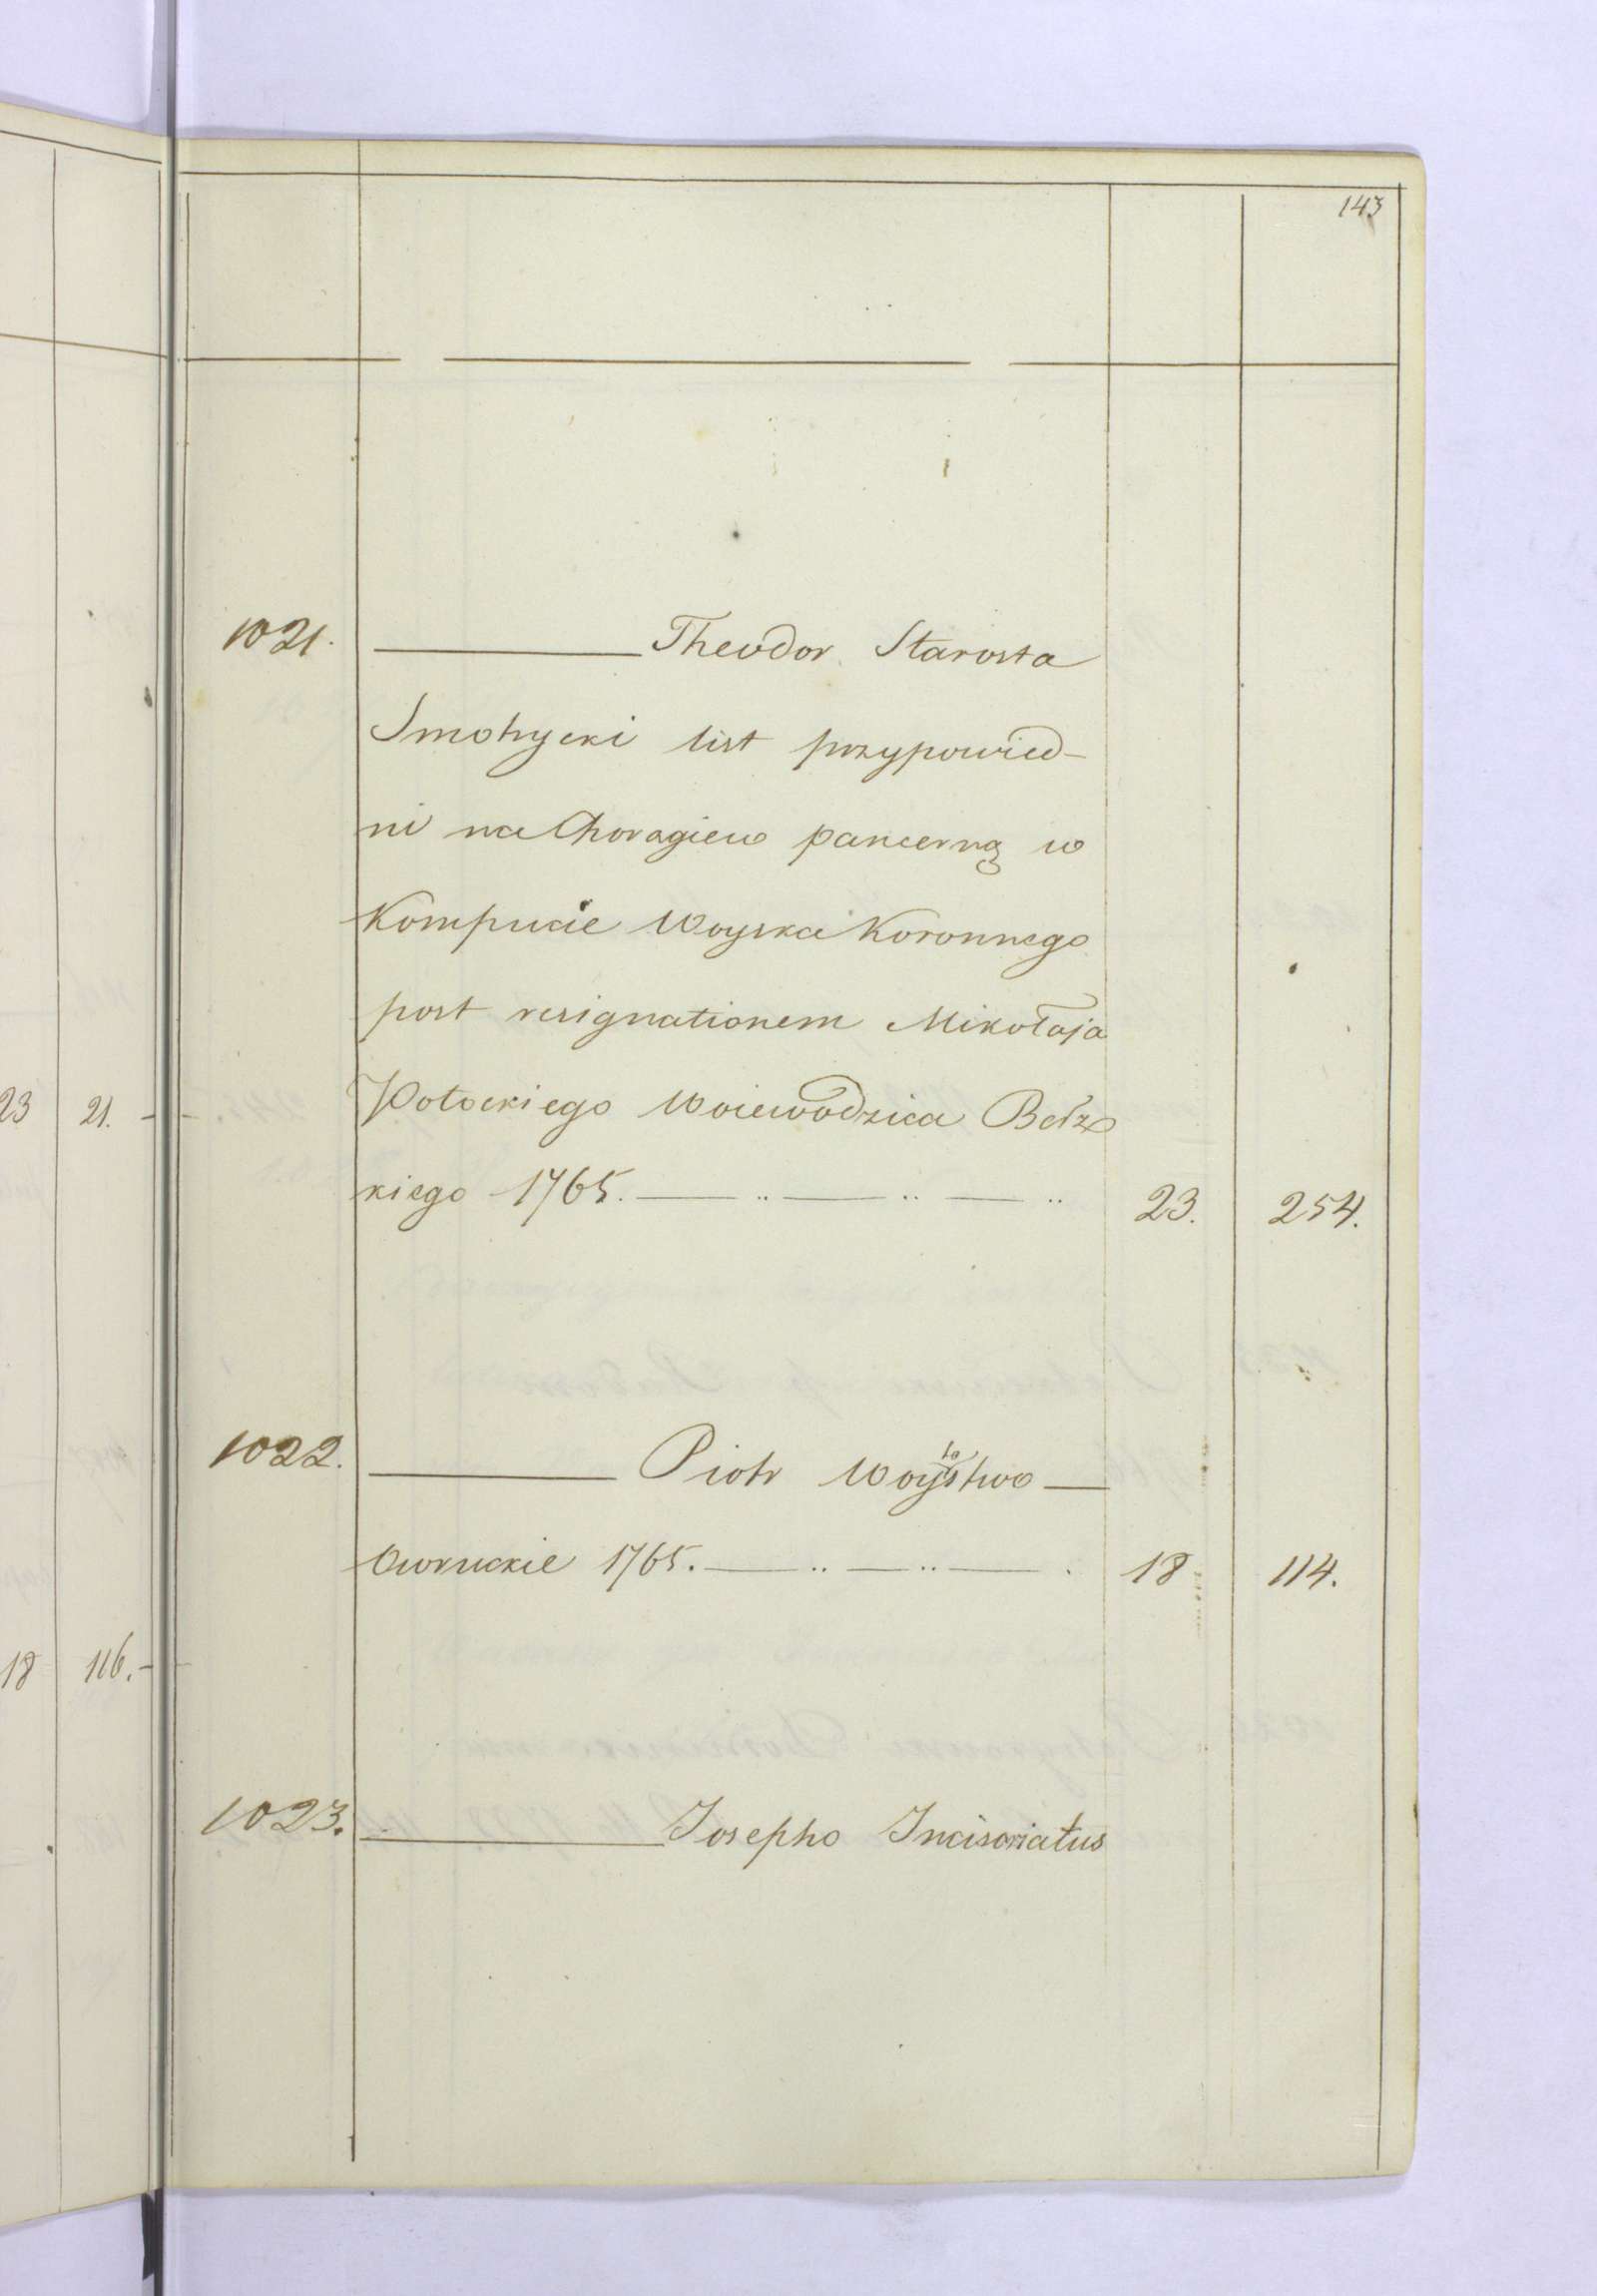 143
1021. Theodor Starosta
Smotrycki list przypowied-
ni na Choragiew pancerną w
Kompucie Woyska Koronnego
post resignationem Mikołaja
Potockiego Woiewodzica Bełz
kiego 1765. 23. 254.
1022. Piotr Woystwo
Owruckie 1765. 18 114.
1023. Josepho Incisoriatus
23 21.
18 116.